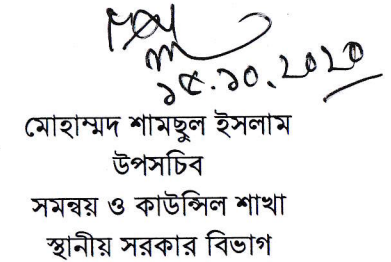 ১৫.১০.২০২০
মোহাম্মদ শামছুল ইসলাম
উপসচিব
সমন্বয় ও কাউন্সিল শাখা
স্থানীয় সরকার বিভাগ